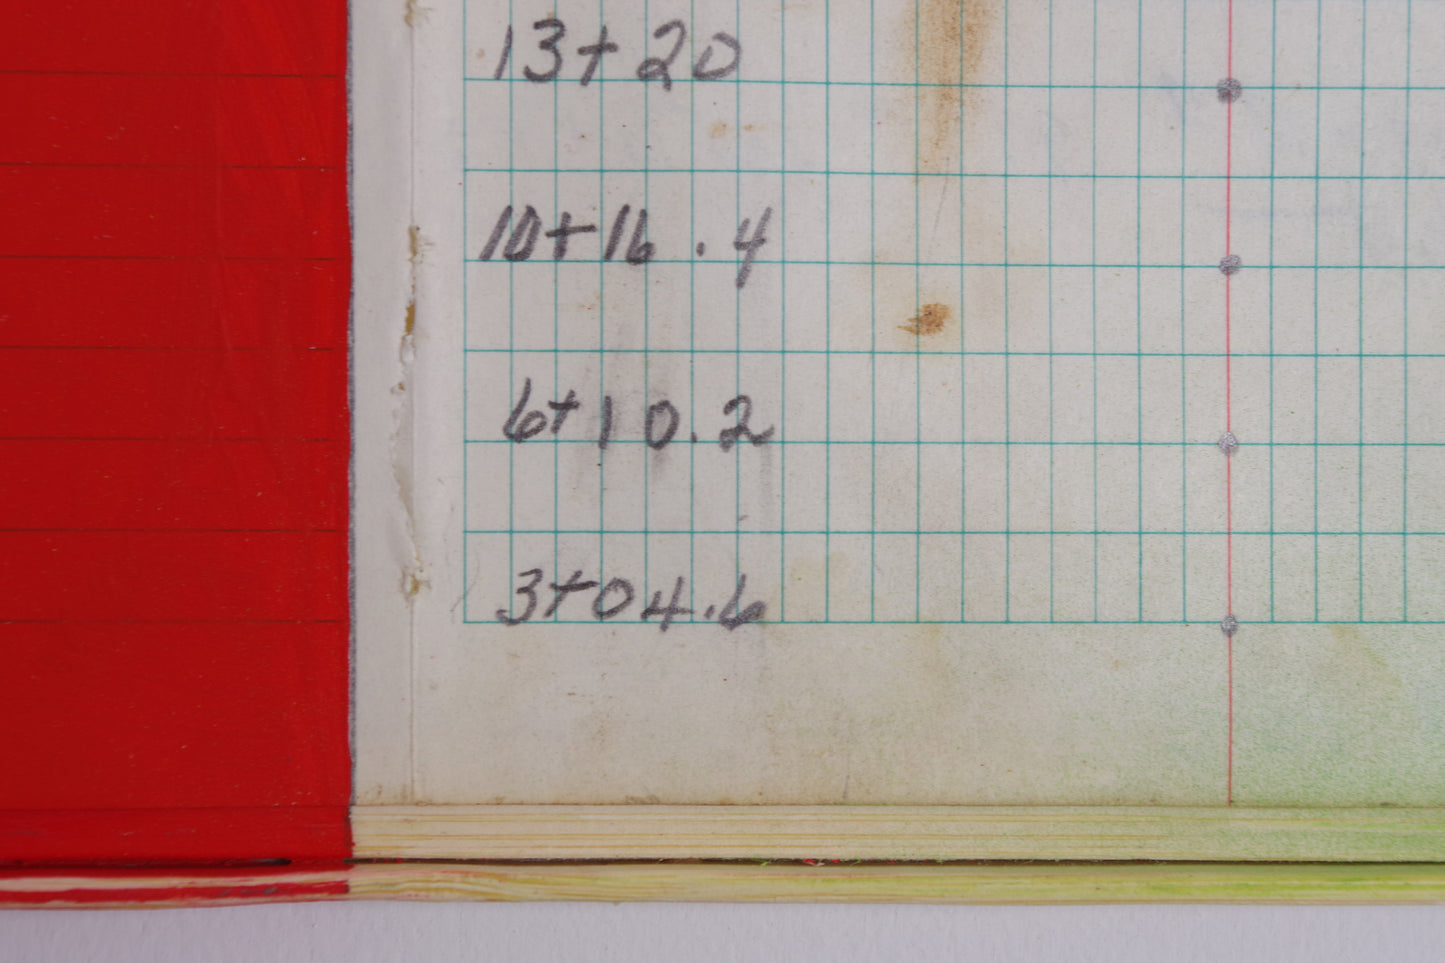 13+20
10+16.4
6+10.2
3+04.6